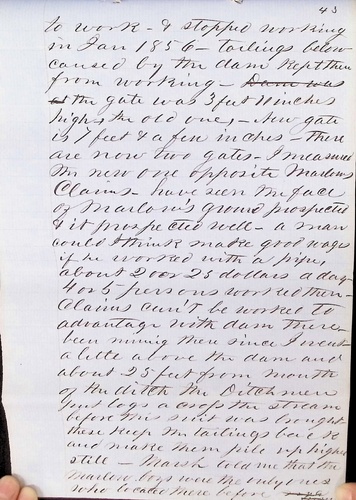 43
to work - & stopped working
in Jan 1856 - tailings below
caused by the dam kept them
from working - Dam was
the gate was 3 feet 11 inches
high, the old one, - New gate
is 7 feet & a few inches - there
are now two gates - I measured
the new one opposite Marlows
Claims - have seen the face
of Marlow's ground prospected
& it prospected well - a man
could I think make good wages
if he worked with a pipe,
about 2 or 25 dollars a day -
4 or 5 persons worked there -
Claims can't be worked to
advantage with dam there -
been mining there since I went
a little above the dam and
about 25 feet from mouth
of the ditch the Ditchmen
put logs across the stream
before this suit was brought
these keep the tailings back
and make them pile up higher
still - Marsh told me that the
Marlow boys were the only ones
who located there before